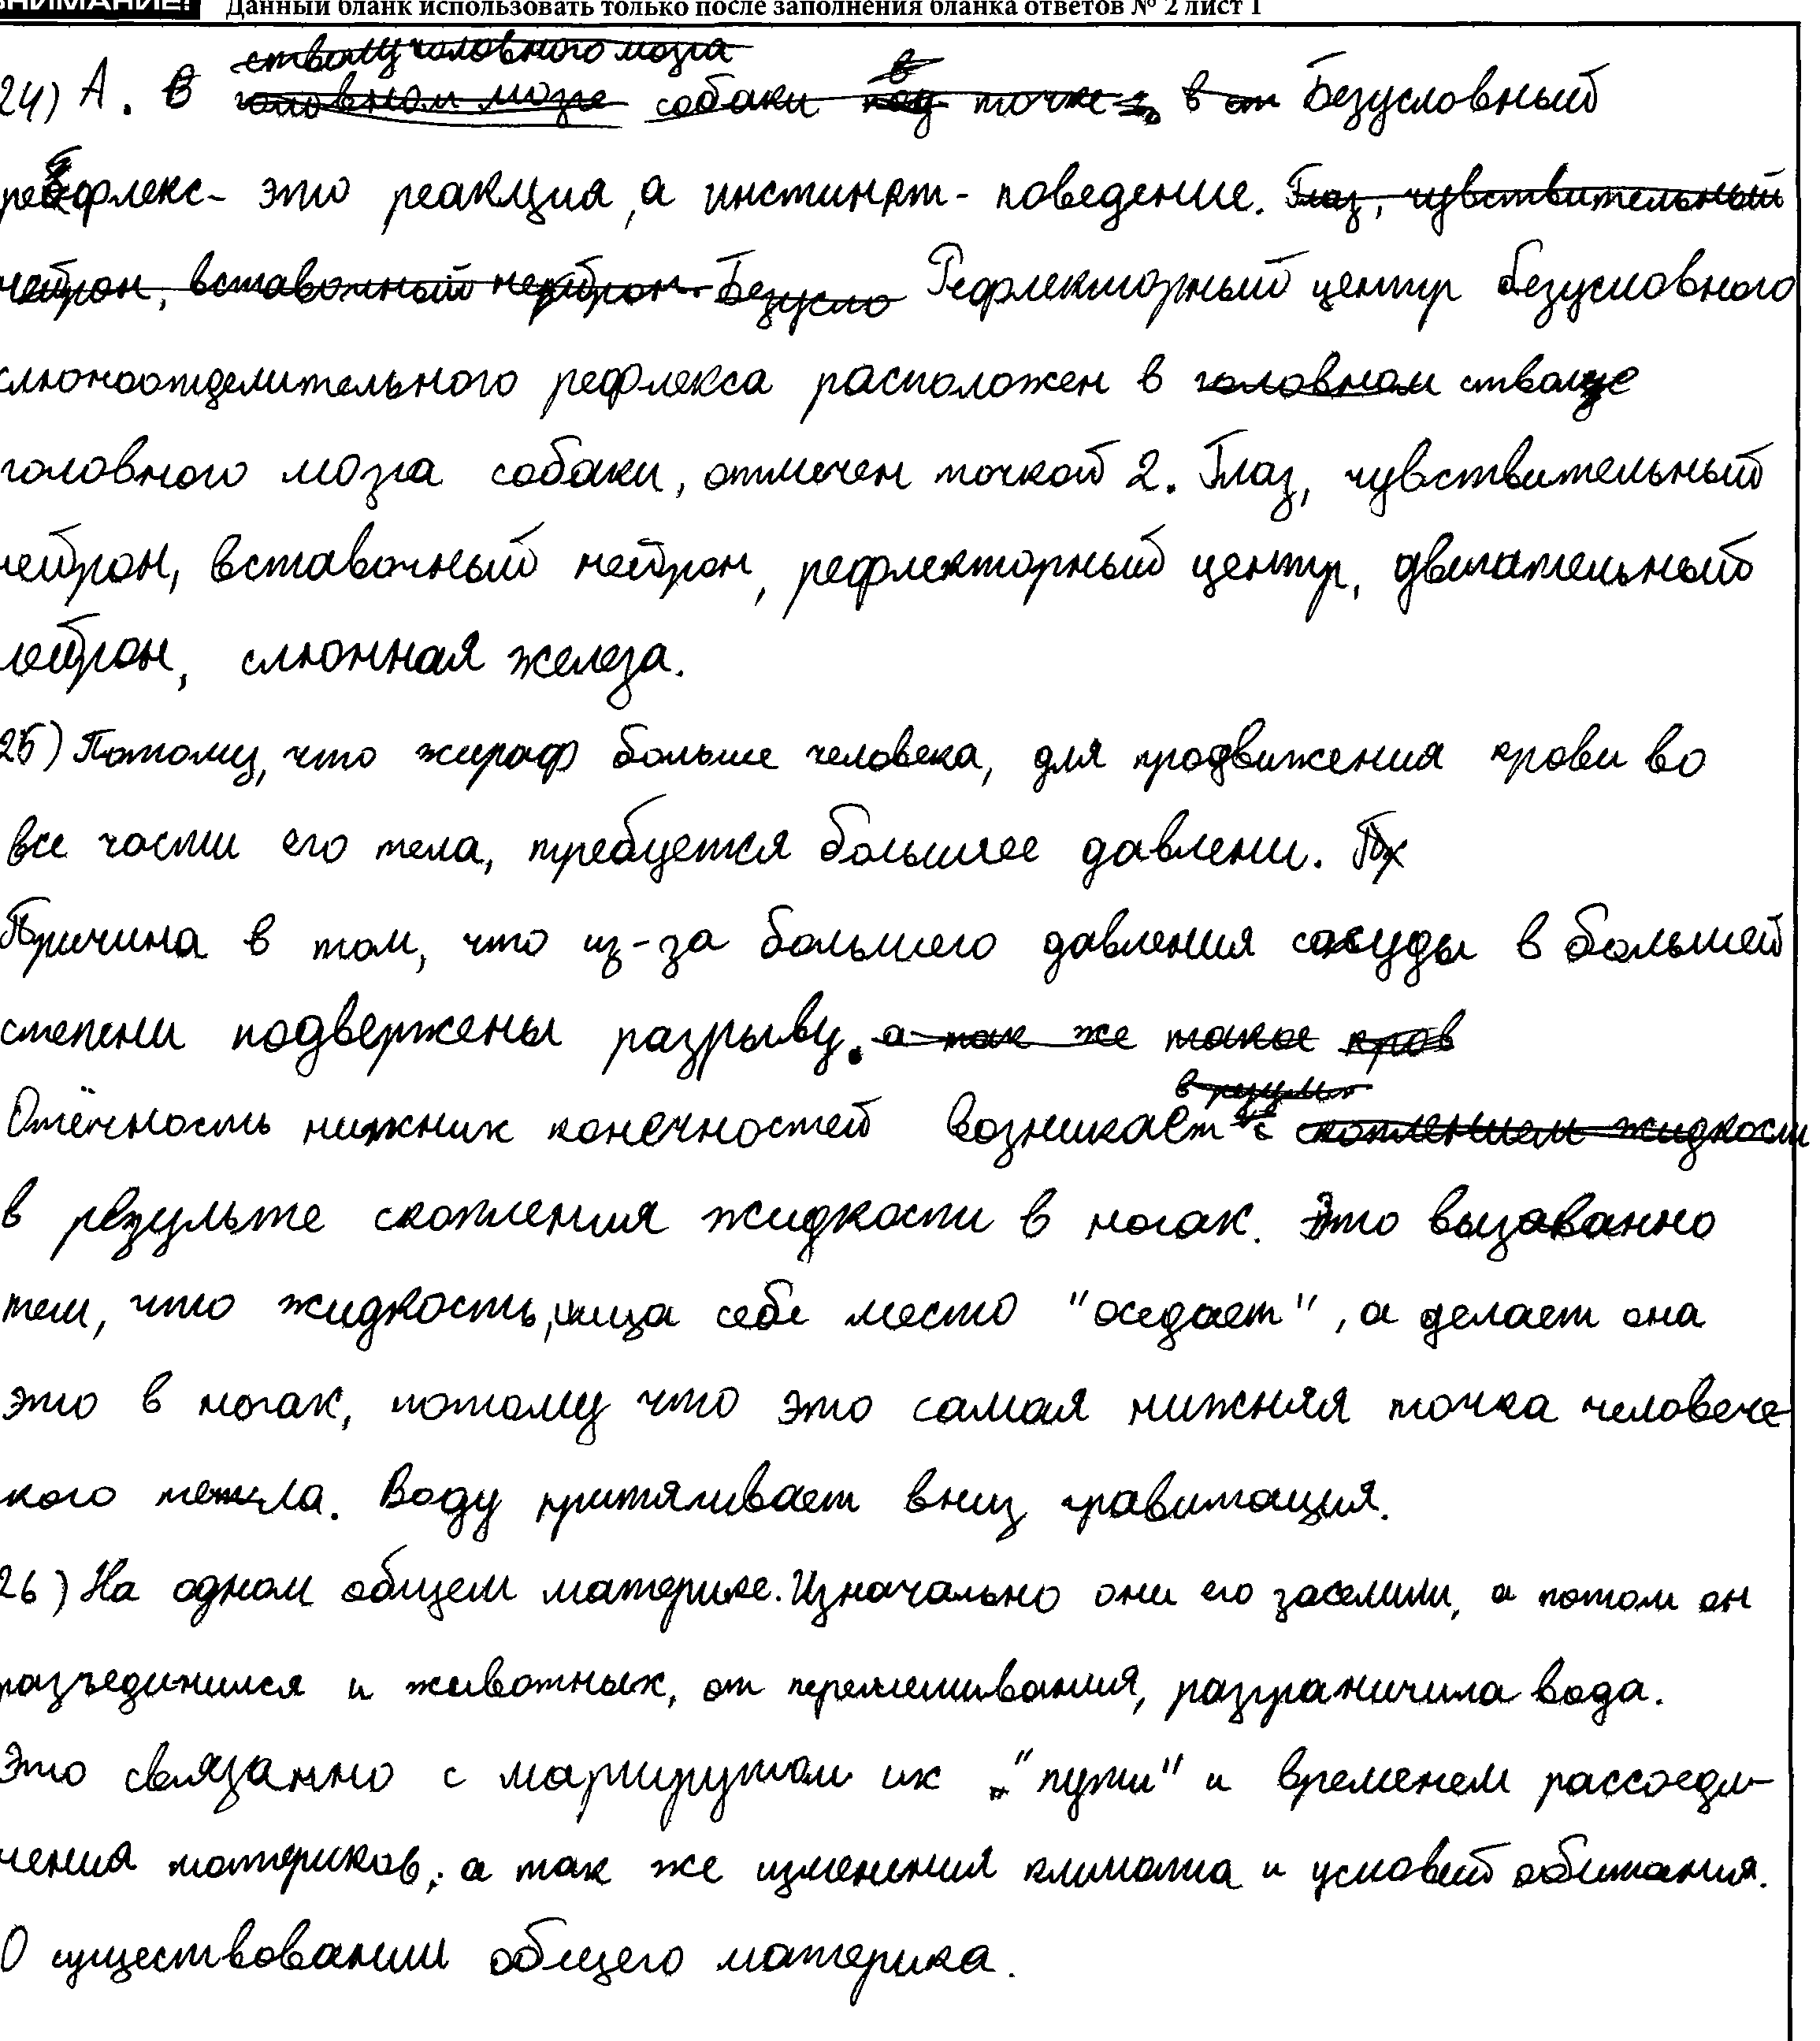 ВНИМАНИЕ! Данный бланк использовать только после заполнения бланка ответов № 2 лист 1
стволу головного мозга в
24) А. В головном мозге собаки под точке 2. в ст Безусловный
рефлекс - это реакция, а инстинкт - поведение. Глаз, чувствительный
нейрон, вставочный нейрон. Безусло Рефлекторный центр безусловного
слюноотделительного рефлекса расположен в головном стволе
головного мозга собаки, отмечен точкой 2. Глаз, чувствительный
нейрон, вставочный нейрон, рефлекторный центр, двигательный
нейрон, слюнная железа.
25) Потому, что жираф больше человека, для продвижения крови во
все части его тела, требуется большее давлени.
Причина в том, что из-за большего давления сосуды в большей
степени подвержены разрыву. а так же такое кров
в результ
Отёчность нижних конечностей возникает с скоплением жидкости
в результе скопления жидкости в ногах. Это вызаванно
тем, что жидкость, ища себе место "оседает", а делает она
это в ногах, потому что это самая нижняя точка человече
кого тела. Воду притягивает вниз гравитация.
26) На одном общем материке. Изначально они его заселили, а потом он
разъединился и животных, от перемешивания, разграничила вода.
Это связанно с маршрутом их "пути" и временем рассоеди-
нения материков, а так же изменения климата и условий обитания.
О существовании общего материка.